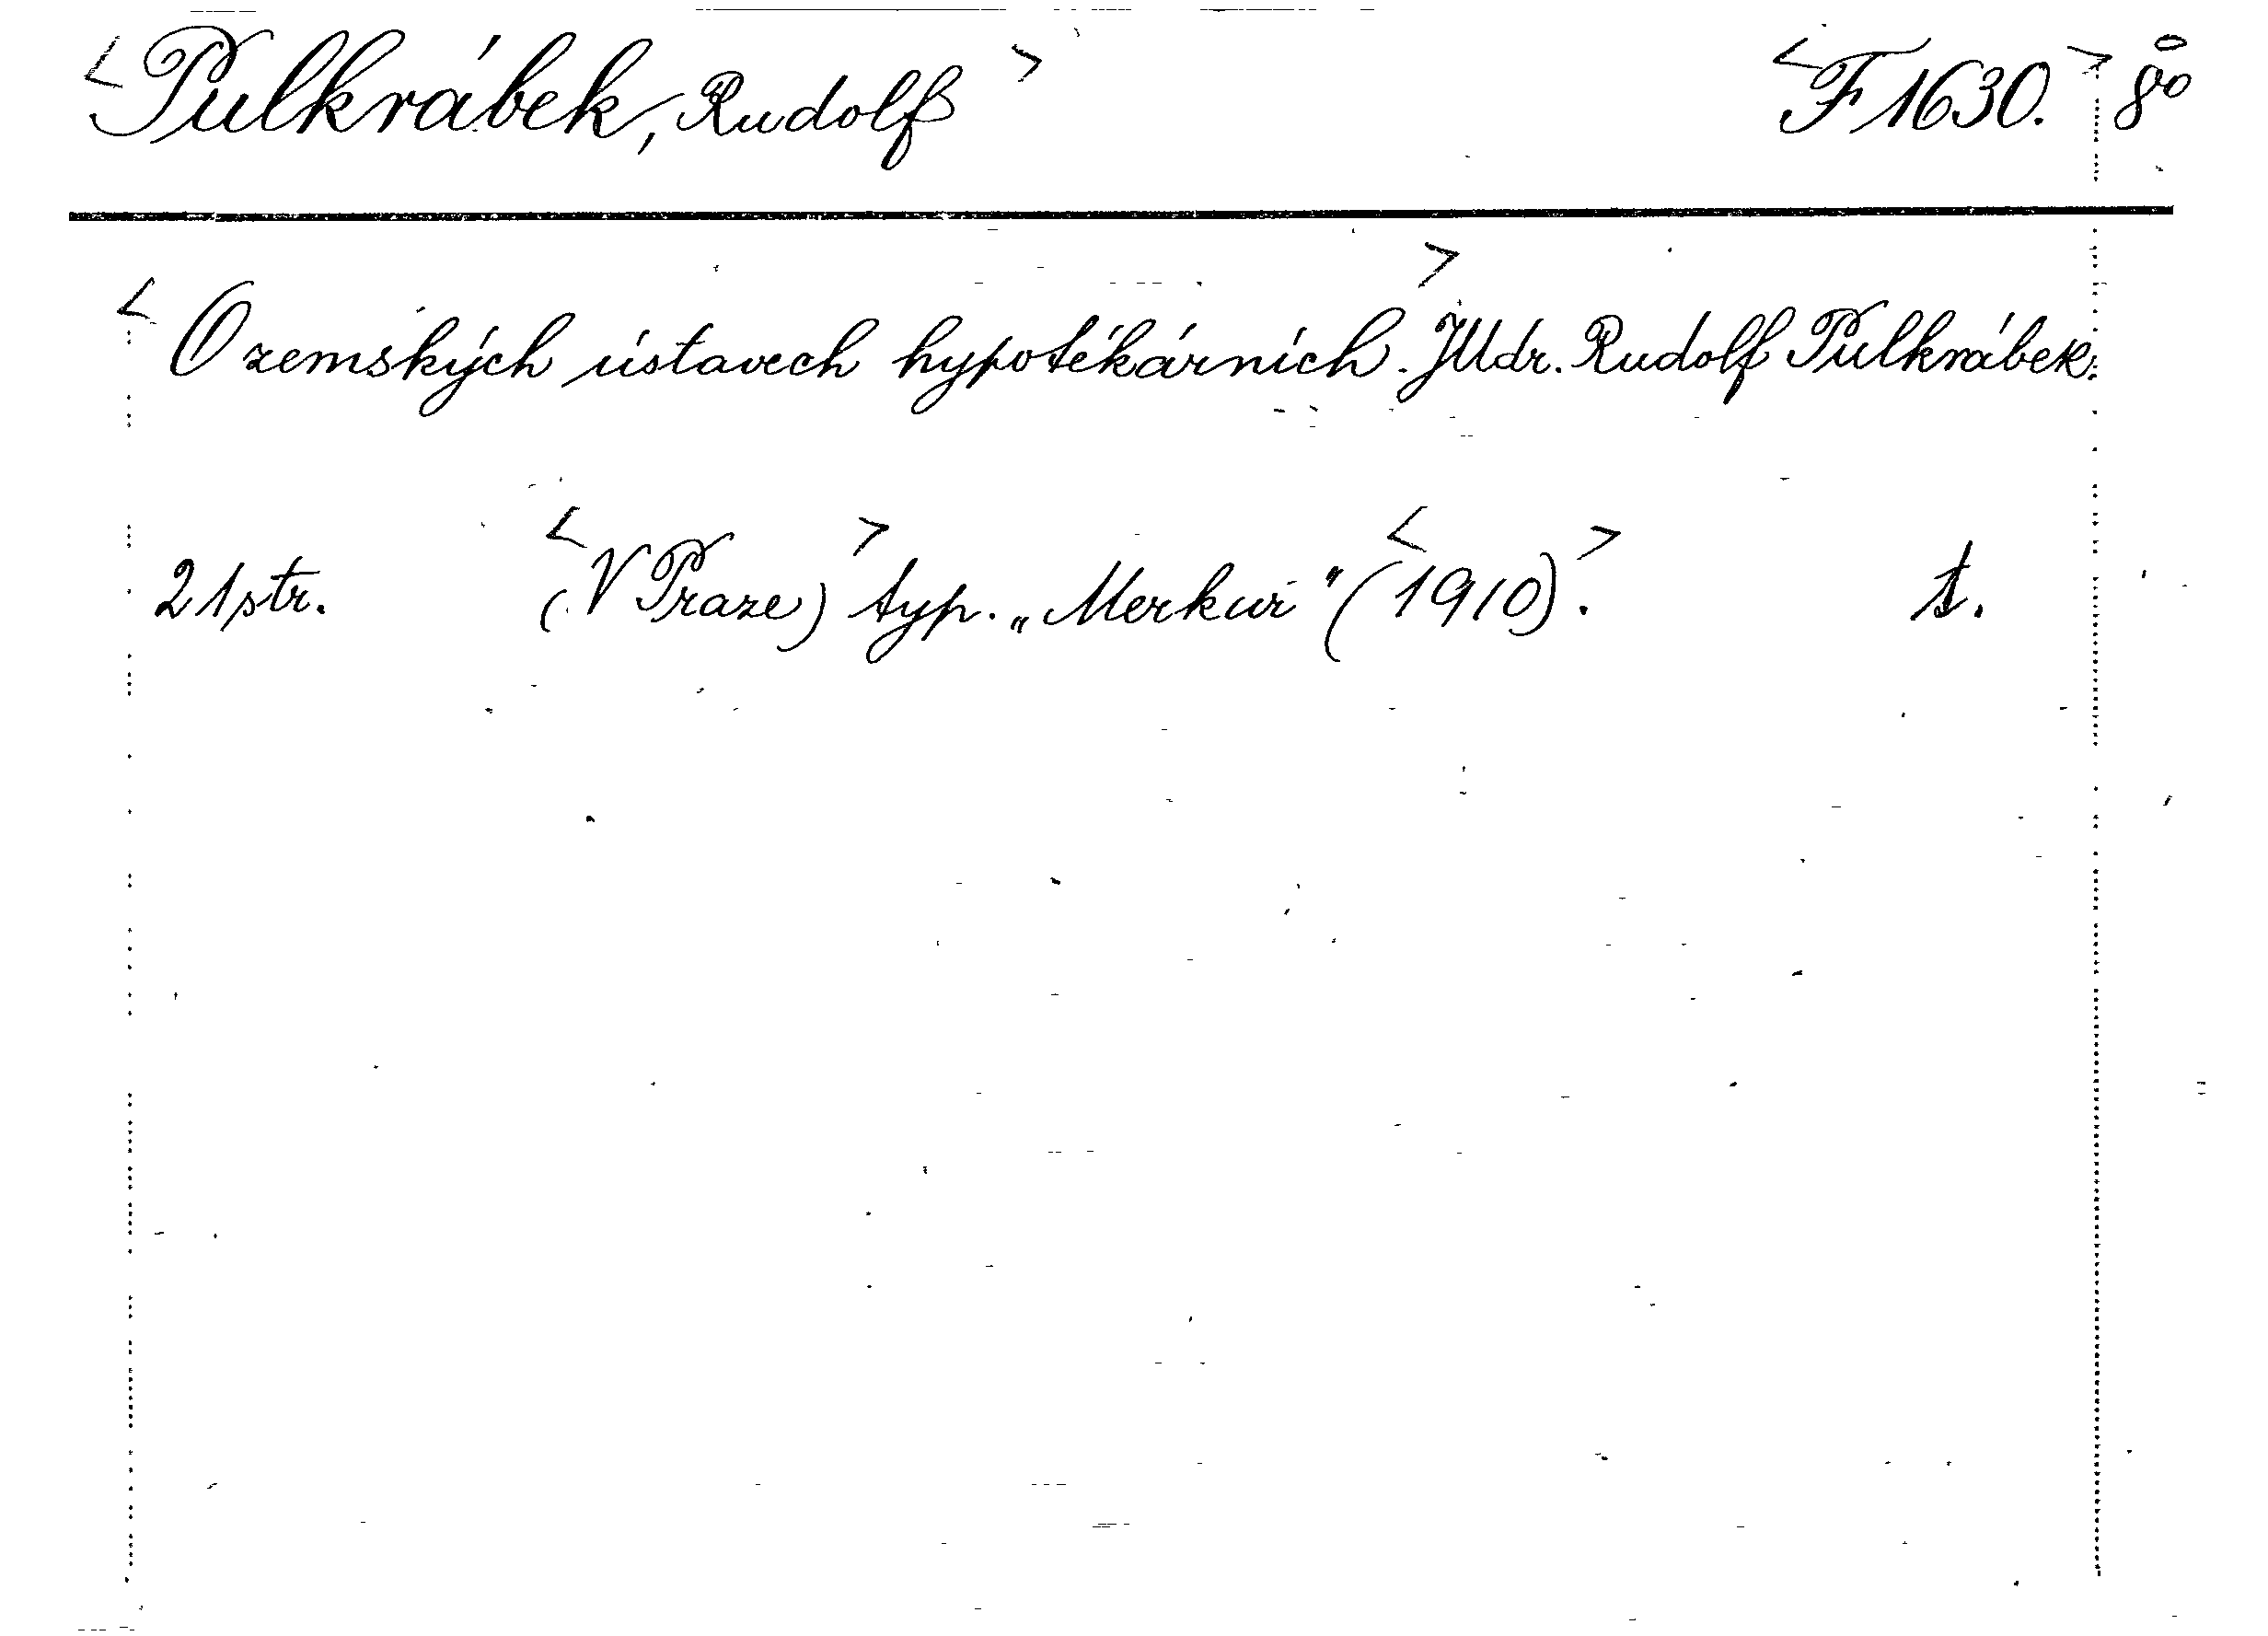 <Pulkrábek, Rudolf> <F 1630.> 8º
<O zemských ústavech hypotékárních.> JUdr. Rudolf Pulkrábek.
21 str. <(V Praze)> typ. „Merkur" <(1910).> t.